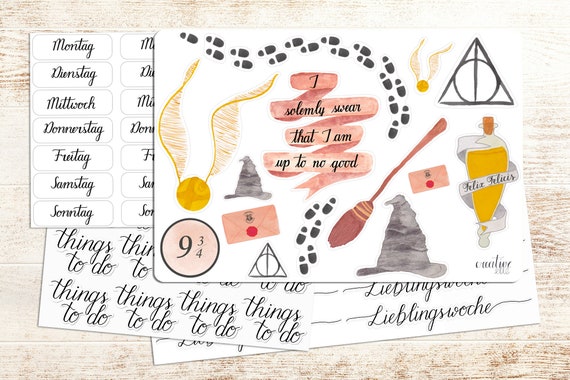 Montag
Dienstag
Mittwoch
Donnerstag
Freitag
Samstag
Sonntag
I
solemly swear
that I am
up to no good
Felix Felicis
9 3/4
creative
things
to do
things
to do
things
to do
things
to do
things
to do
things
to do
things
to do
Lieblingswoche
Lieblingswoche